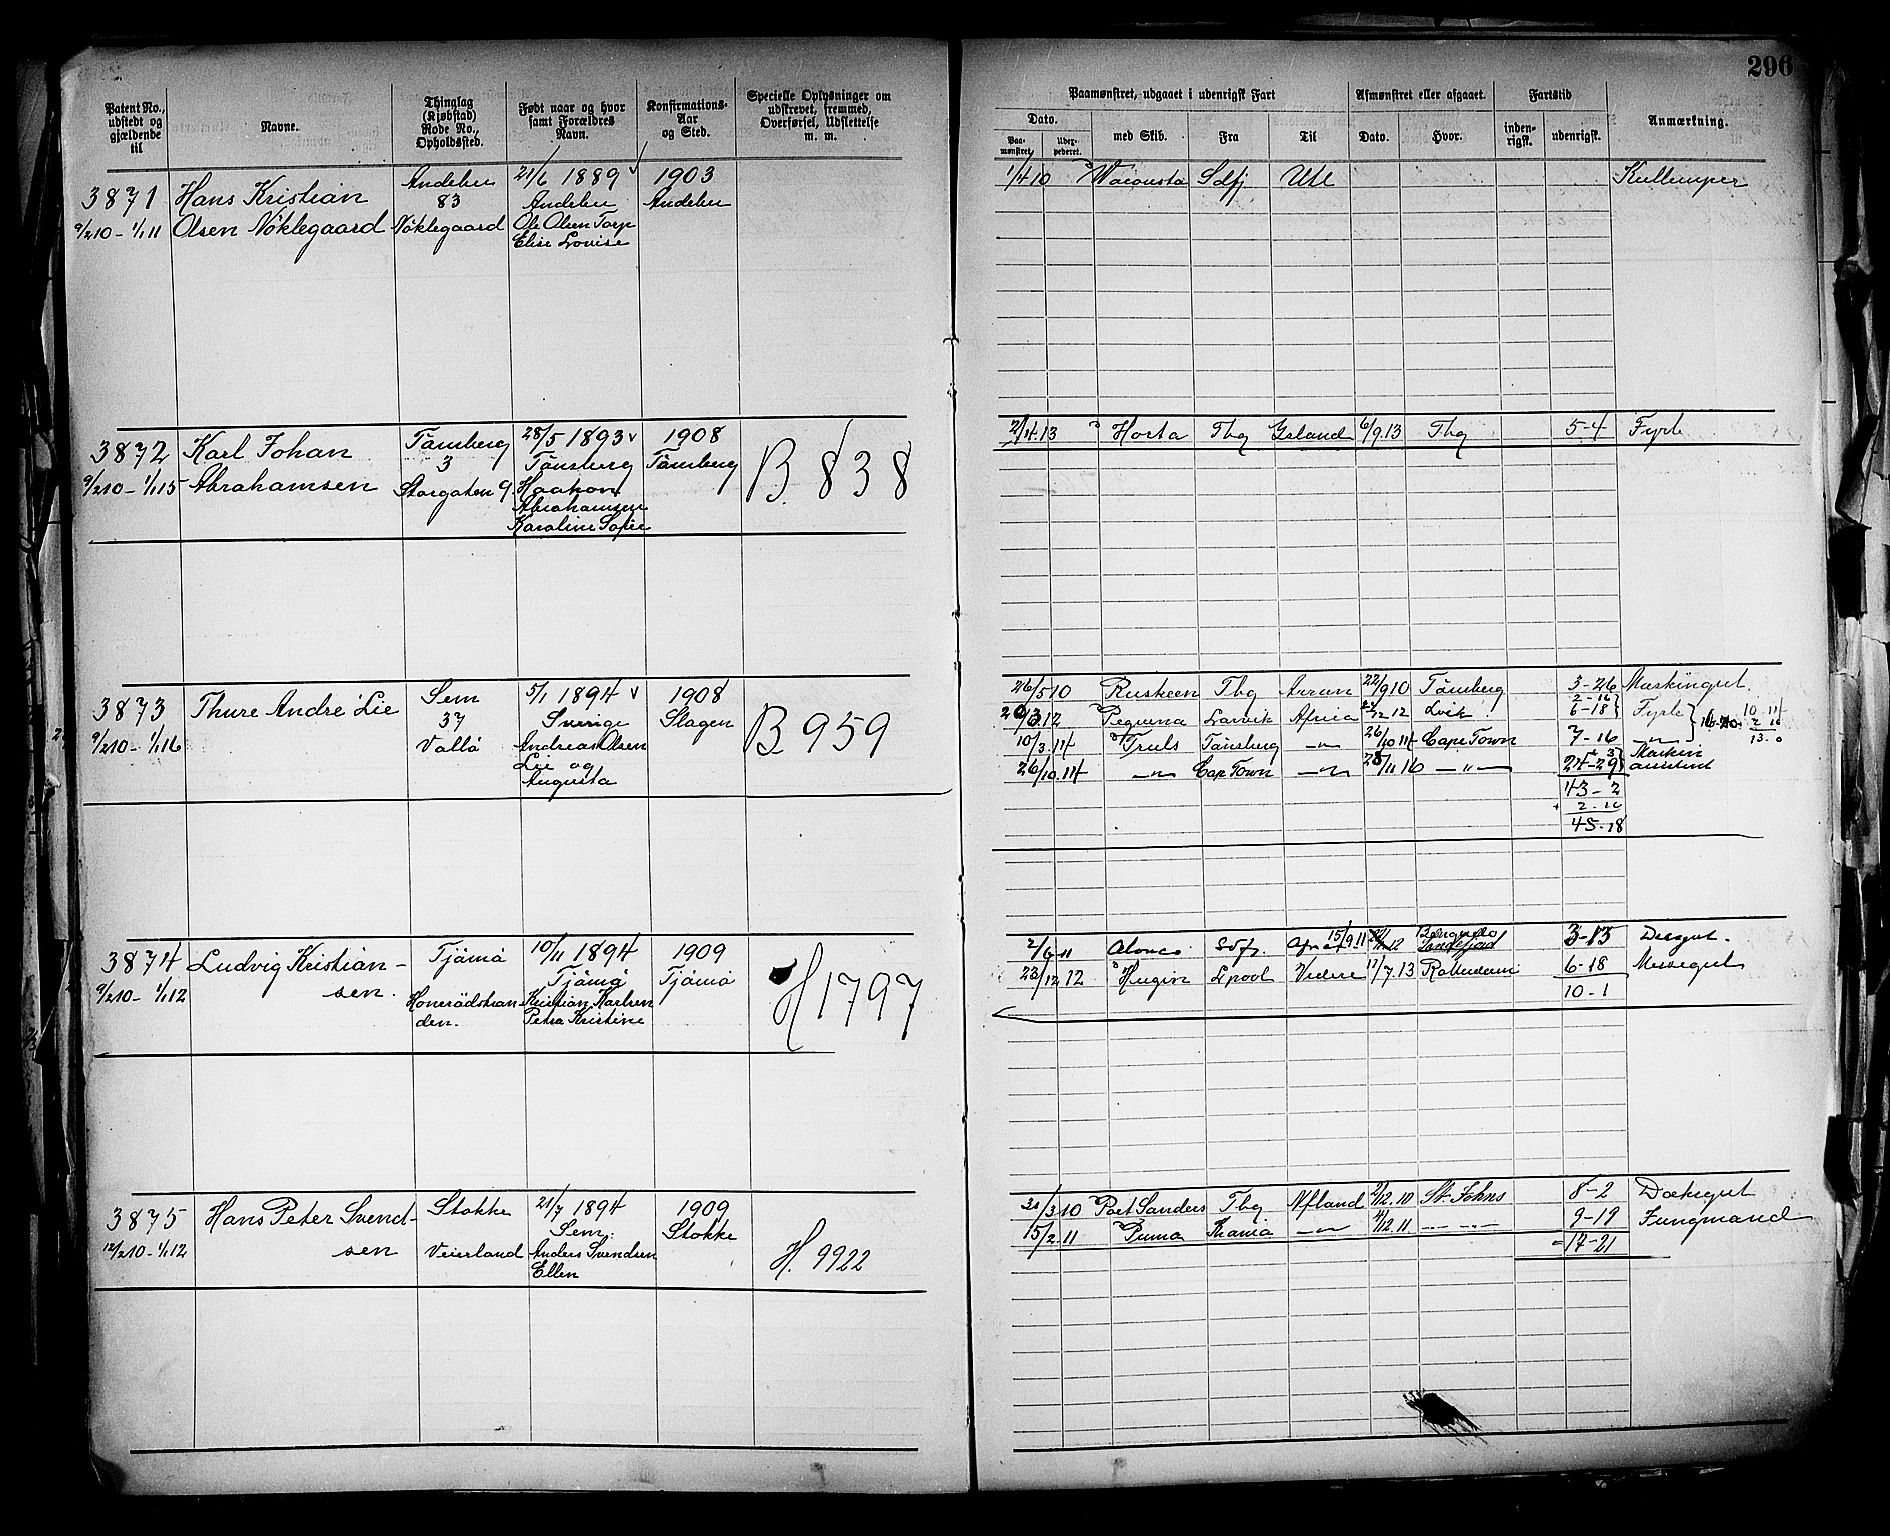 296
Patent No., udstedt og gjældende til
Navne.
Thinglag (Kjøbstad) Rode No., Opholdssted.
Født naar og hvor samt Forældres Navn.
Konfirmations-Aar og Sted.
Specielle Oplysninger om udskrevet, fremmed, Overførsel, Udslettelse m. m.
Paamønstret, udgaaet i udenrigsk Fart
Afmønstret eller afgaaet.
Fartstid
Anmærkning.
Dato.
Paa-mønstret.
med Skib.
Fra
Til
Dato.
Hvor.
inden-rigsk.
udenrigsk.
3871 Hans Kristian Andebu 21/6 1889 1903
83 Andebu Andebu
9/2 10 - 1/1 11 Olsen Nøklegaard Nøklegaard Ole Olsen Torp
Elise Lovise
1/4 10 Wacousta Sdfj Utl
3872 Karl Johan Tønsberg 28/5 1893 1908
3 Tønsberg Tønsberg B. 838
9/2 10 - 1/1 15 Abrahamsen Storgaten 9 Haakon
Abrahamsen
Karoline Sofie
2/4.13 Horta Tbg Island 6/9.13 Tbg 5-4 Fyrb
3873 Thure Andre Lie Sem 5/1 1894 1908
37 Sverige Slagen B 959
9/2 10 - 1/1 16 Vallø Andreas Olsen
Lie og
Augusta
26/5 10 Ruskeen Tbg 22/9 10 Tønsberg 3-26 Maskingut
2-16
20/3 12 Pequena Larvik Africa 12 12 Lvik 6-18 Fyrb
10/3.14 Truls Tønsberg -"- 26/10 14 Cape Town 7-16 -"-
26/10.14 -"- Cap Town -"- 28/11 16 -"- 24-29 Maskin
assistent
43-2
2-16
45-18
3874 Ludvig Kristian- Tjømø 10/11 1894 1909
sen. Tjømø Tjømø H 1797
9/2 10 - 1/1 12 Kristian Karlsen
den. Petra Kristine
2/6 11 Sdfj. 15/9.11 Sandefjord 3-13
23/12 12 Hugin Lpool Videre 17/7.13 Rotterdam 6-18 Messegut
10-1
3875 Hans Peter Svend- Stokke 21/7 1894 1909
sen Sem. Stokke
12/2 10 - 1/1 12 Veierland Anders Svendsen
Ellen H. 9922
/3 10 Port Sanders Tbg Nfland /12.10 St. Johns 8-2 Dæksgut
15/2.11 Puma -"- /12.11 -"- 9-19 Jungmand
17-21